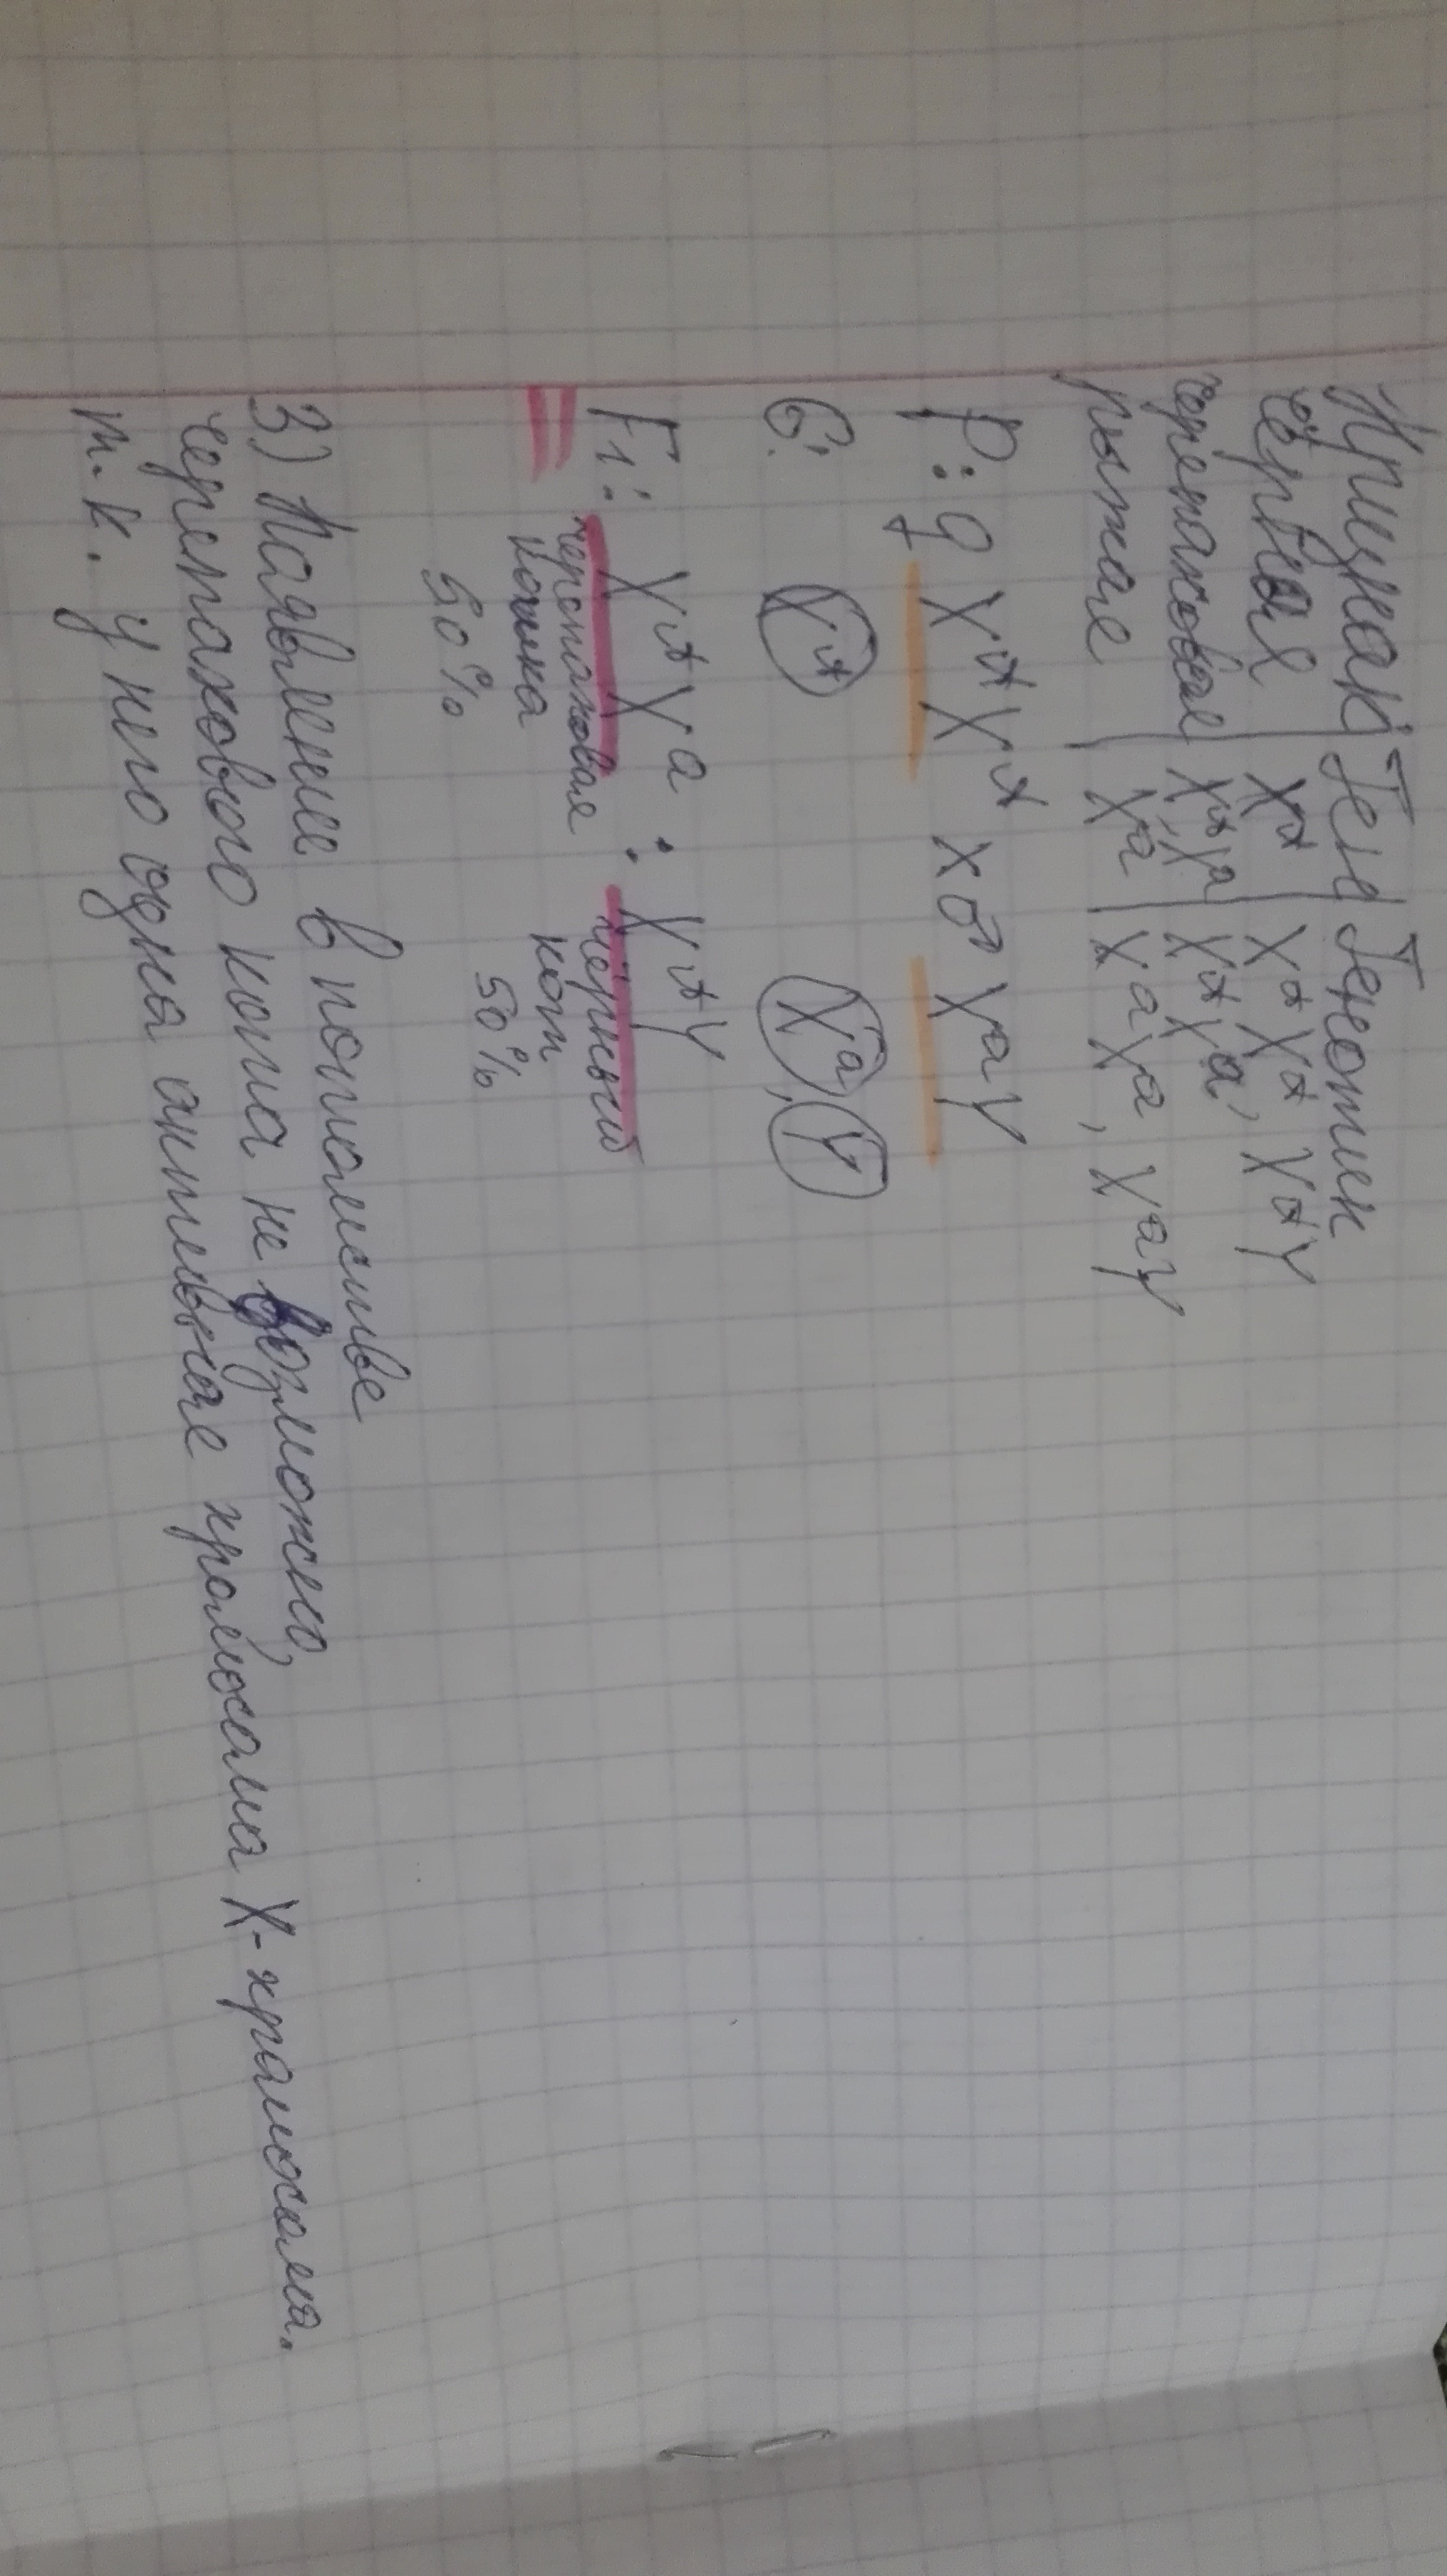 Признак | Ген | Генотип
чёрная | X^A | X^A X^A, X^A Y
черепаховая | X^A, X^a | X^A X^a,
рыжая | X^a | X^a X^a, X^a Y
P: ♀ X^A X^A x ♂ X^a Y
G: X^A X^a, Y
F1: X^A X^a : X^A Y
черепаховая чёрный
кошка кот
50% 50%
3) Появление в потомстве
черепахового кота не возможно,
т.к. у него одна хромосома X-хромосома.